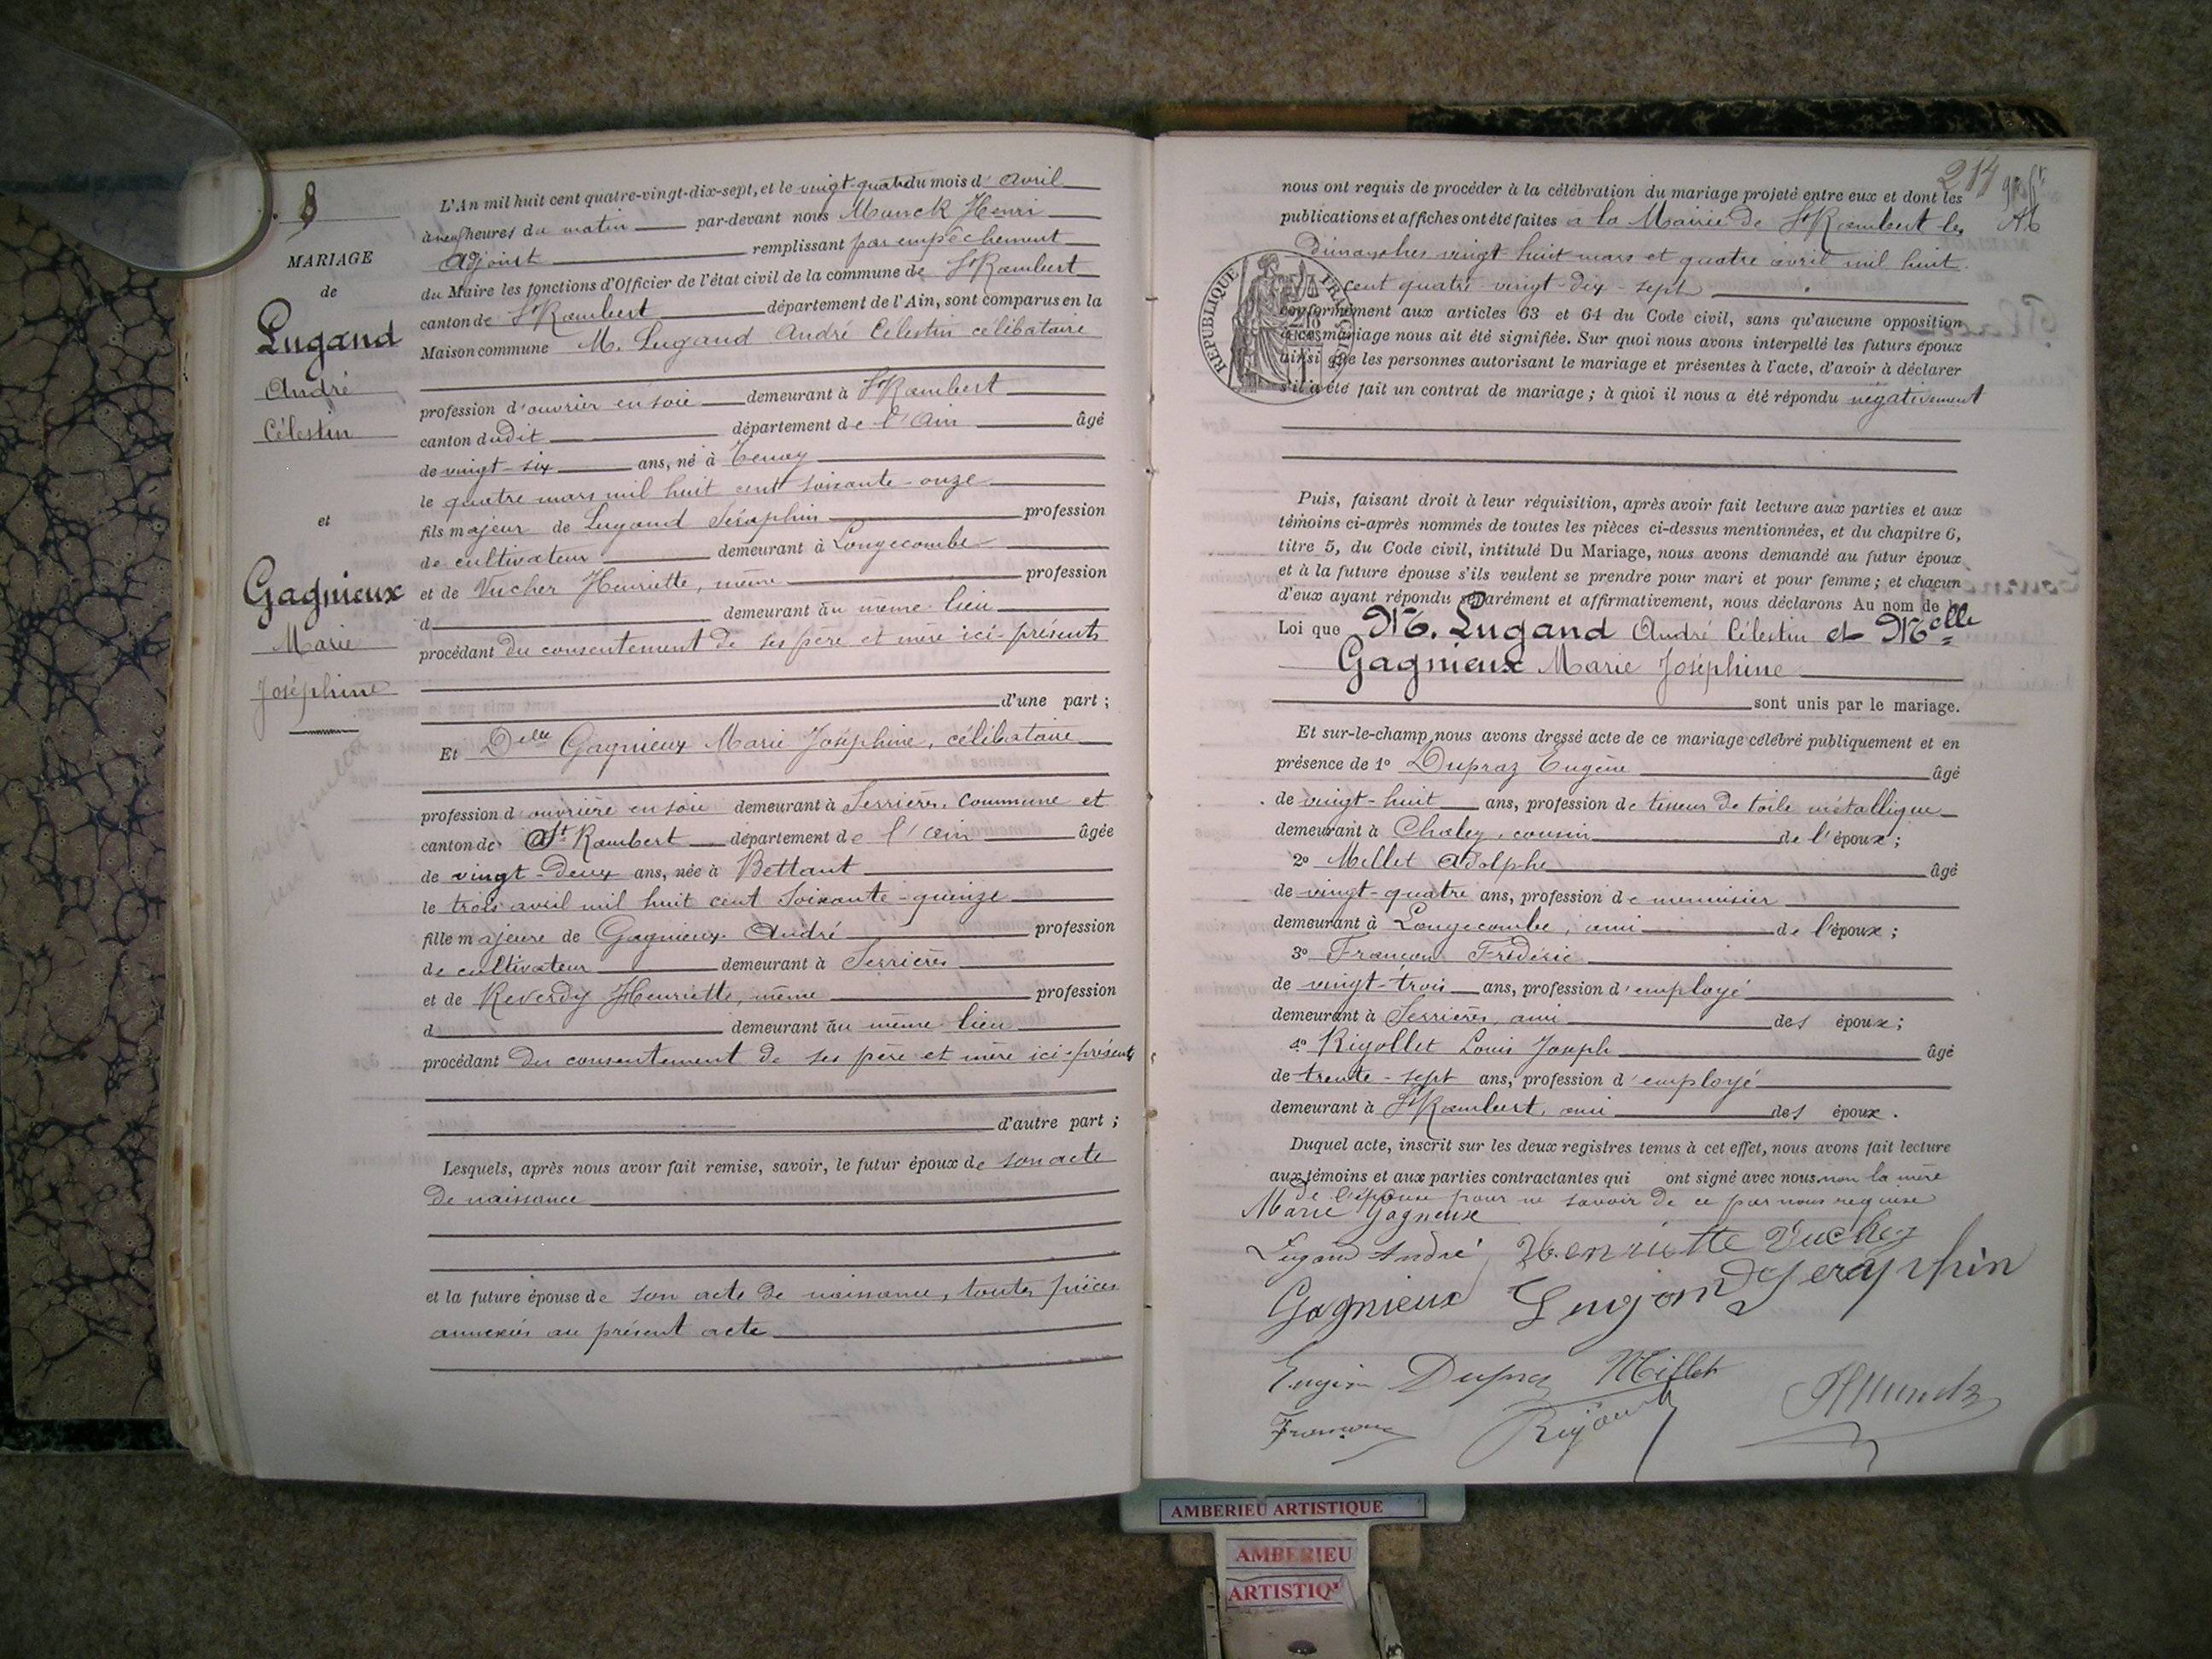 8
MARIAGE
de
Lugand
André
Célestin
et
Gagnieux
Marie
Joséphine
L'An mil huit cent quatre-vingt-dix-sept, et le vingt-quatre du mois d'avril
à neuf heures du matin par-devant nous Munck Henri
Adjoint remplissant par empêchement
du Maire les fonctions d'Officier de l'état civil de la commune de St Rambert
canton de St Rambert département de l'Ain, sont comparus en la
Maison commune M. Lugand André Célestin célibataire
profession d'ouvrier en soie demeurant à St Rambert
canton dudit département de l'Ain âgé
de vingt-six ans, né à Tenay
le quatre mars mil huit cent soixante-onze
fils majeur de Lugand Séraphin profession
de cultivateur demeurant à Longecombe
et de Vucher Henriette, même profession
d demeurant au même lieu
procédant du consentement de ses père et mère ici-présents
d'une part ;
Et Delle Gagnieux Marie Joséphine, célibataire
profession d'ouvrière en soie demeurant à Serrières, commune et
canton de St Rambert département de l'Ain âgée
de vingt-deux ans, née à Bettant
le trois avril mil huit cent soixante-quinze
fille majeure de Gagnieux André profession
de cultivateur demeurant à Serrières
et de Reverdy Henriette, même profession
d demeurant au même lieu
procédant du consentement de ses père et mère ici-présents
d'autre part ;
Lesquels, après nous avoir fait remise, savoir, le futur époux de son acte
de naissance
et la future épouse de son acte de naissance, toutes pièces
annexées au présent acte
214
nous ont requis de procéder à la célébration du mariage projeté entre eux et dont les
publications et affiches ont été faites à la Mairie de St Rambert les
dimanches vingt-huit mars et quatre avril mil huit
cent quatre-vingt-dix-sept
RÉPUBLIQUE FRANÇAISE
conformément aux articles 63 et 64 du Code civil, sans qu'aucune opposition
à ces mariage nous ait été signifiée. Sur quoi nous avons interpellé les futurs époux
ainsi que les personnes autorisant le mariage et présentes à l'acte, d'avoir à déclarer
s'il a été fait un contrat de mariage ; à quoi il nous a été répondu négativement
Puis, faisant droit à leur réquisition, après avoir fait lecture aux parties et aux
témoins ci-après nommés de toutes les pièces ci-dessus mentionnées, et du chapitre 6,
titre 5, du Code civil, intitulé Du Mariage, nous avons demandé au futur époux
et à la future épouse s'ils veulent se prendre pour mari et pour femme ; et chacun
d'eux ayant répondu séparément et affirmativement, nous déclarons Au nom de la
Loi que M. Lugand André Célestin et Melle
Gagnieux Marie Joséphine
sont unis par le mariage.
Et sur-le-champ nous avons dressé acte de ce mariage célébré publiquement et en
présence de 1º Dupraz Eugène âgé
de vingt-huit ans, profession de tisseur de toile métallique
demeurant à Chaley, cousin de l'époux ;
2º Millet Adolphe âgé
de vingt-quatre ans, profession de menuisier
demeurant à Longecombe, ami de l'époux ;
3º Françon Frédéric
de vingt-trois ans, profession d'employé
demeurant à Serrières, ami des époux ;
4º Rigollet Louis Joseph âgé
de trente-sept ans, profession d'employé
demeurant à St Rambert, ami des époux.
Duquel acte, inscrit sur les deux registres tenus à cet effet, nous avons fait lecture
aux témoins et aux parties contractantes qui ont signé avec nous non la mère
de l'épouse pour ne savoir de ce par nous requise
Marie Gagneux
Lugand André Henriette Vucher
Gagnieux Lugand Seraphin
Eugène Dupraz Millet
HMunck
AMBERIEU ARTISTIQUE
AMBERIEU
ARTISTIQ